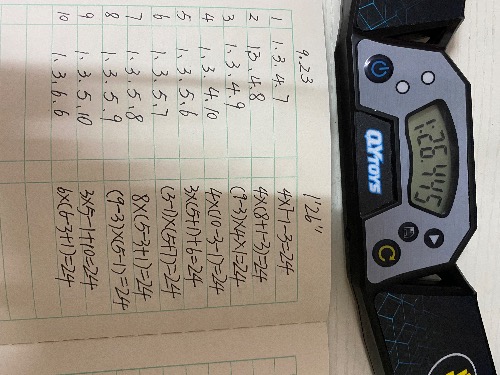 9.23 1'26"
1 1.3.4.7 4×7-1-3=24
2 1.3.4.8 4×(8+1-3)=24
3 1.3.4.9 (9-3)×4×1=24
4 1.3.4.10 4×(10-3-1)=24
5 1.3.5.6 3×(5+1)+6=24
6 1.3.5.7 (3-1)×(5+7)=24
7 1.3.5.8 8×(5-3+1)=24
8 1.3.5.9 (9-3)×(5-1)=24
9 1.3.5.10 3×5-1+10=24
10 1.3.6.6 6×(6-3+1)=24
QYTOYS